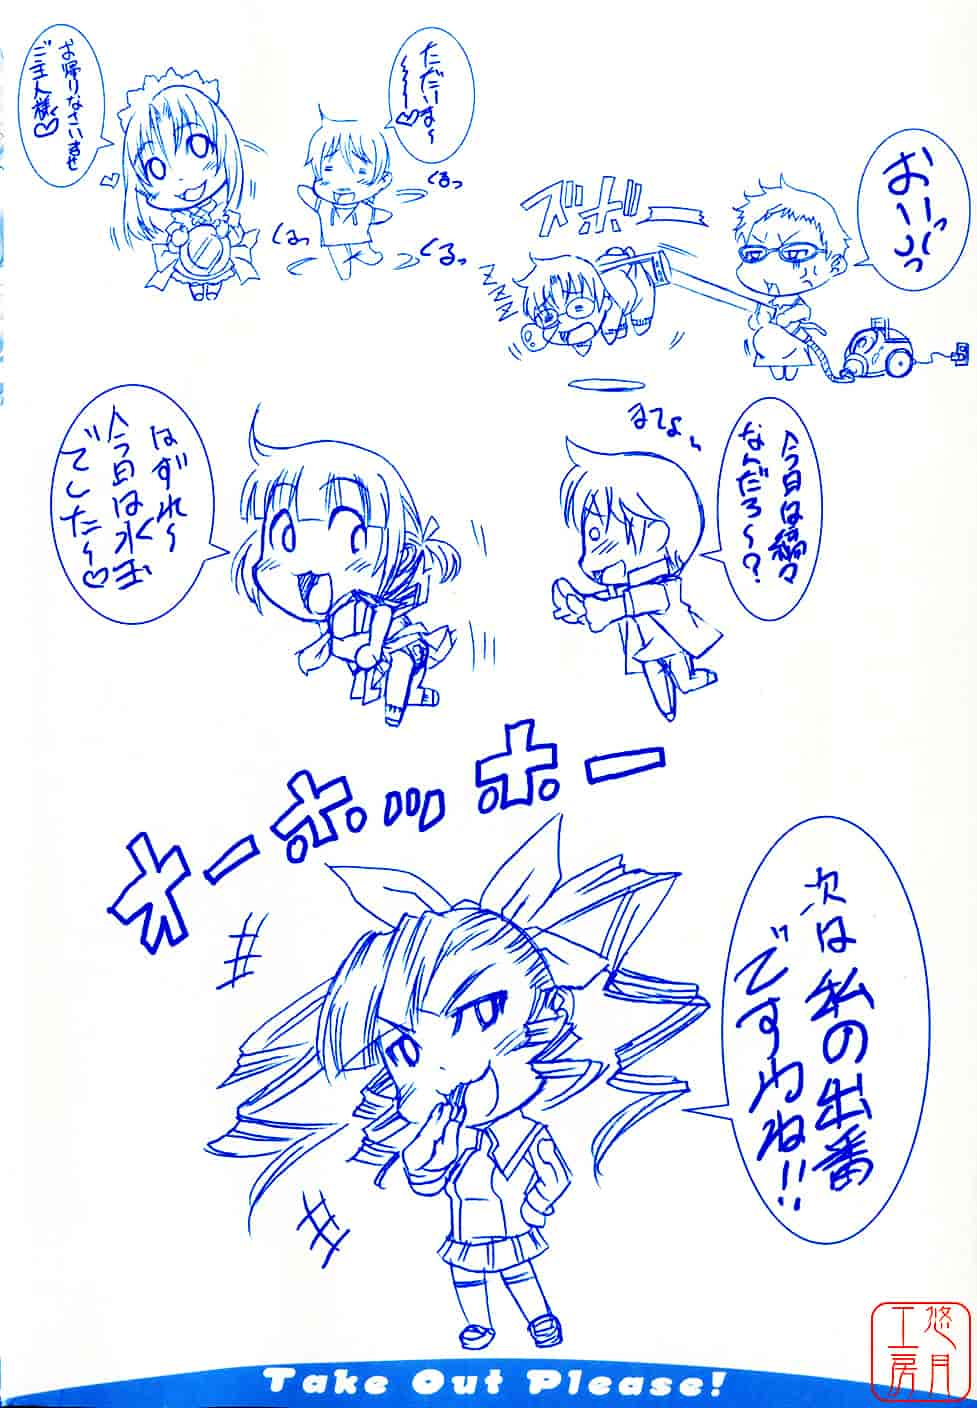 ただーいま〜
〜〜〜♡
お帰りなさいませ
ご主人様♡
くるっ
くるっ
くるっ
おいっっ
ズボーー
ZZZZ
まてよぃ
今日は縞々
なんだろ〜？
はずれ〜
今日は水玉
でした〜♡
オーホッホー
次は私の出番
ですわね!!
Take Out Please!
悠月
工房